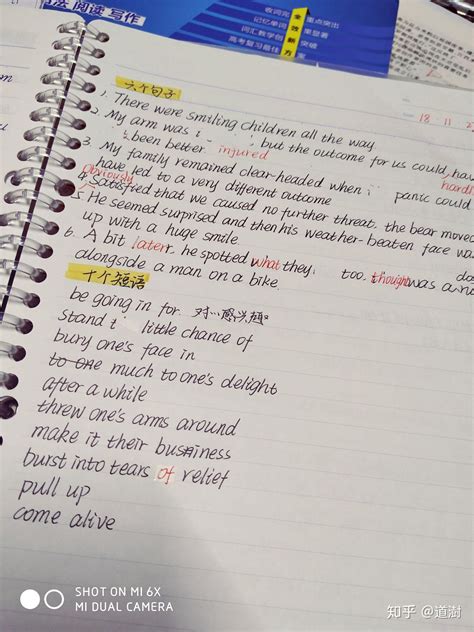 法 阅读 写作
收词完
重点突出
记忆单词
果显著
词汇教学创
突破
高考复习最佳
方案
全
效
新
六个句子
18. 11. 2
1. There were smiling children all the way.
2. My arm was , but the outcome for us could have
been better injured hard
3. My family remained clear-headed when panic could
have led to a very different outcome
Obviously
4. Satisfied that we caused no further threat, the bear moved
5. He seemed surprised and then his weather-beaten face wa
up with a huge smile.
6. A bit later, he spotted what they too, thought was
alongside a man on a bike
十个短语
be going in for. 对…感兴趣
stand little chance of
bury one's face in
to one much to one's delight
after a while
threw one's arms around
make it their business
burst into tears of relief
pull up
come alive
SHOT ON MI 6X
MI DUAL CAMERA
知乎 @道澍